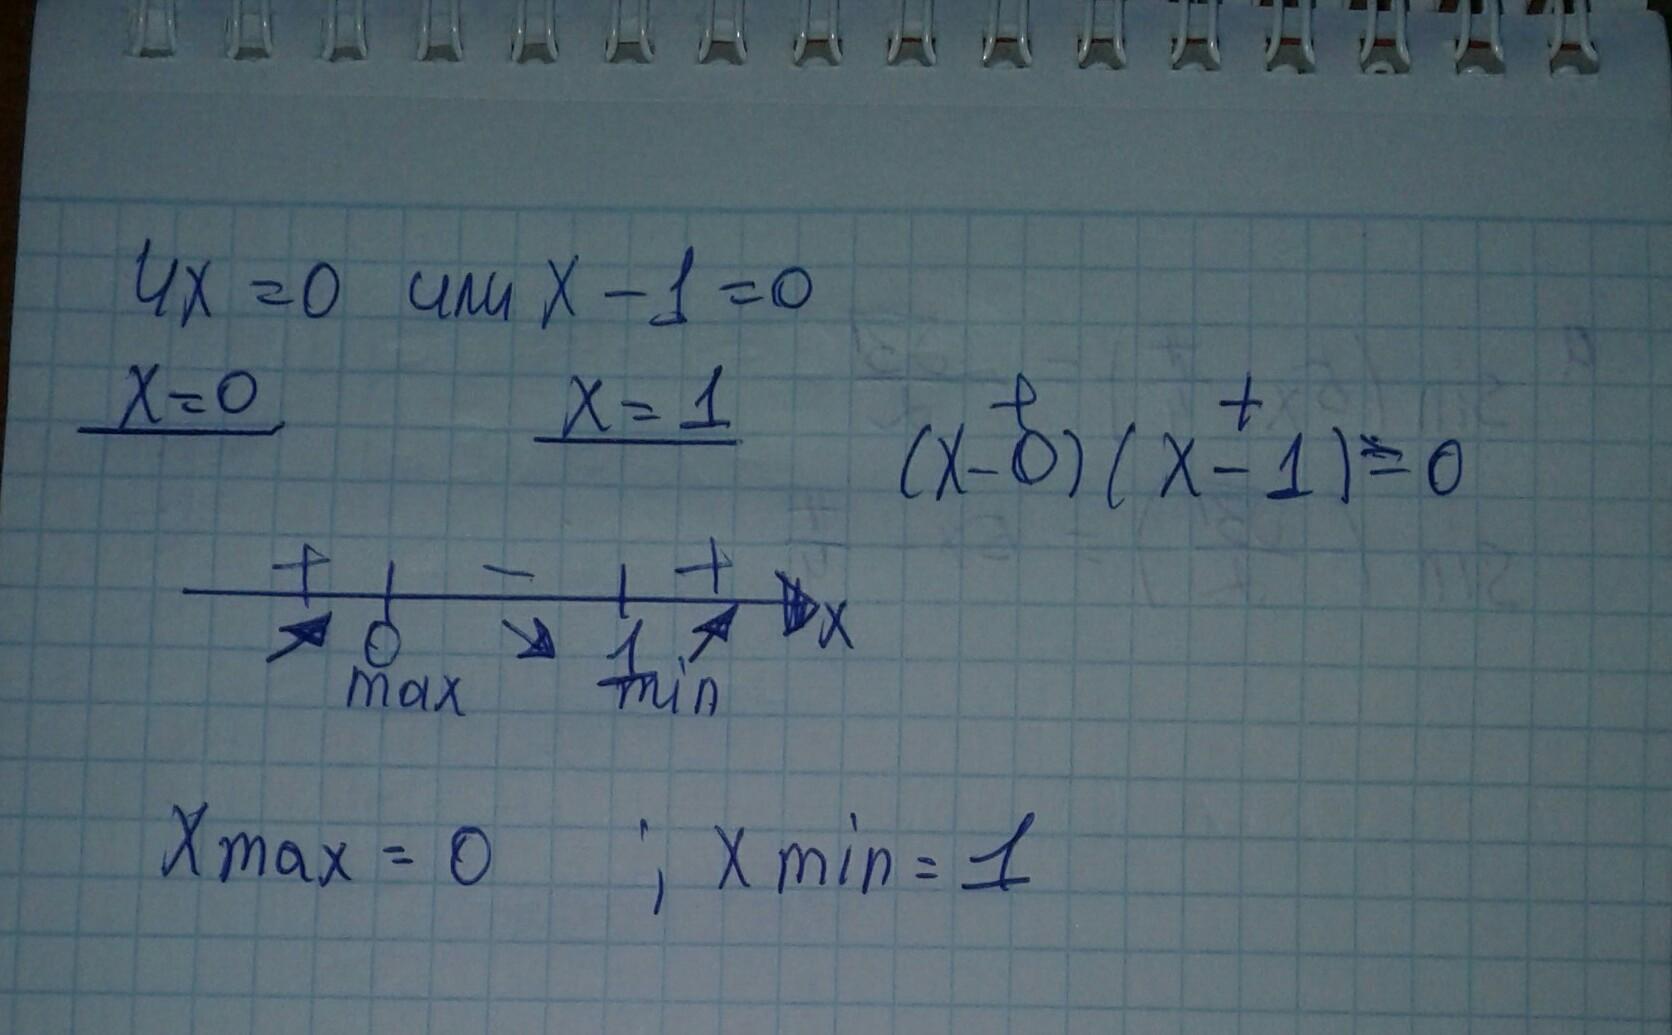 4x = 0 или x - 1 = 0
x = 0 x = 1
+ +
(x - 0) (x - 1) = 0
+ - +
0 1 x
max min
x max = 0 ; x min = 1